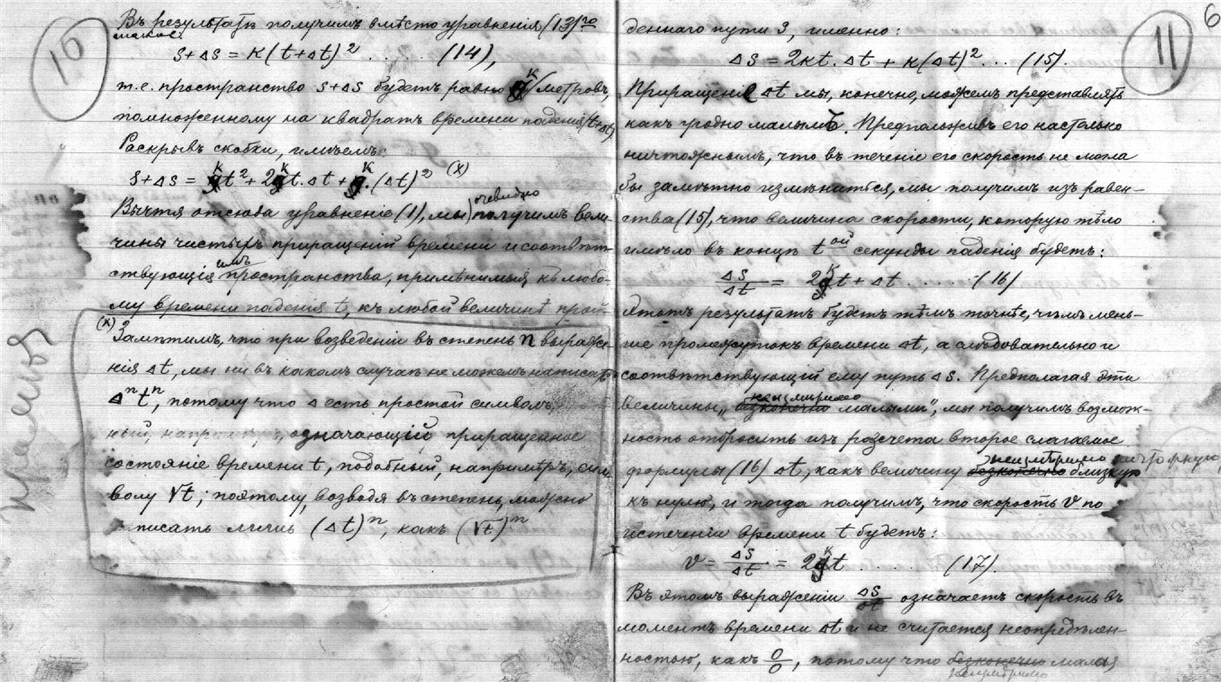 10
Въ результатѣ получимъ вмѣсто уравненія (13)го
такое:
s+Δs = к(t+Δt)² ..... (14),
т.е. пространство s+Δs будетъ равно к метровъ,
помноженному на квадратъ времени паденія (t+Δt)
Раскрывъ скобки, имѣемъ:
s+Δs = кt² + 2кt.Δt + к.(Δt)² (x)
Вычтя отсюда уравненіе (1), мы очевидно получимъ вели-
чины чистыхъ приращеній времени и соотвѣт-
ствующія имъ пространства, примѣнимыя къ любо-
му времени паденія t, къ любой величинѣ прой-
(x) Замѣтимъ, что при возведеніи въ степень n выраже-
нія Δt, мы ни въ какомъ случаѣ не можемъ написать
Δⁿtⁿ, потому что Δ есть простой символъ,
означающій приращенное
состояніе времени t, подобный, напримѣръ, сим-
волу √t; поэтому, возводя въ степень, можно
писать лишь (Δt)ⁿ, какъ (√t)ⁿ
6
11
деннаго пути S, именно:
Δs = 2кt.Δt + к(Δt)² ... (15).
Приращеніе Δt мы, конечно, можемъ представлять
какъ угодно малымъ. Предположивъ его настолько
ничтожнымъ, что въ теченіе его скорость не могла
бы замѣтно измѣниться, мы получимъ изъ равен-
ства (15), что величина скорости, которую тѣло
имѣло въ концѣ tой секунды паденія будетъ:
Δs/Δt = 2кt + Δt ..... (16)
Этотъ результатъ будетъ тѣмъ точнѣе, чѣмъ мень-
ше промежутокъ времени Δt, а слѣдовательно и
соотвѣтствующій ему путь Δs. Предполагая эти
величины „неизмѣримо малыми“, мы получимъ возмож-
ность отбросить изъ разсчета второе слагаемое
формулы (16) Δt, какъ величину неизмѣримо близкую
къ нулю, и тогда получимъ, что скорость v по
истеченіи времени t будетъ:
v = Δs/Δt = 2кt ....... (17).
Въ этомъ выраженіи Δs/Δt означаетъ скорость въ
моментъ времени Δt и не считается неопредѣлен-
ностью, какъ 0/0, потому что безконечно малая
неизмѣримо